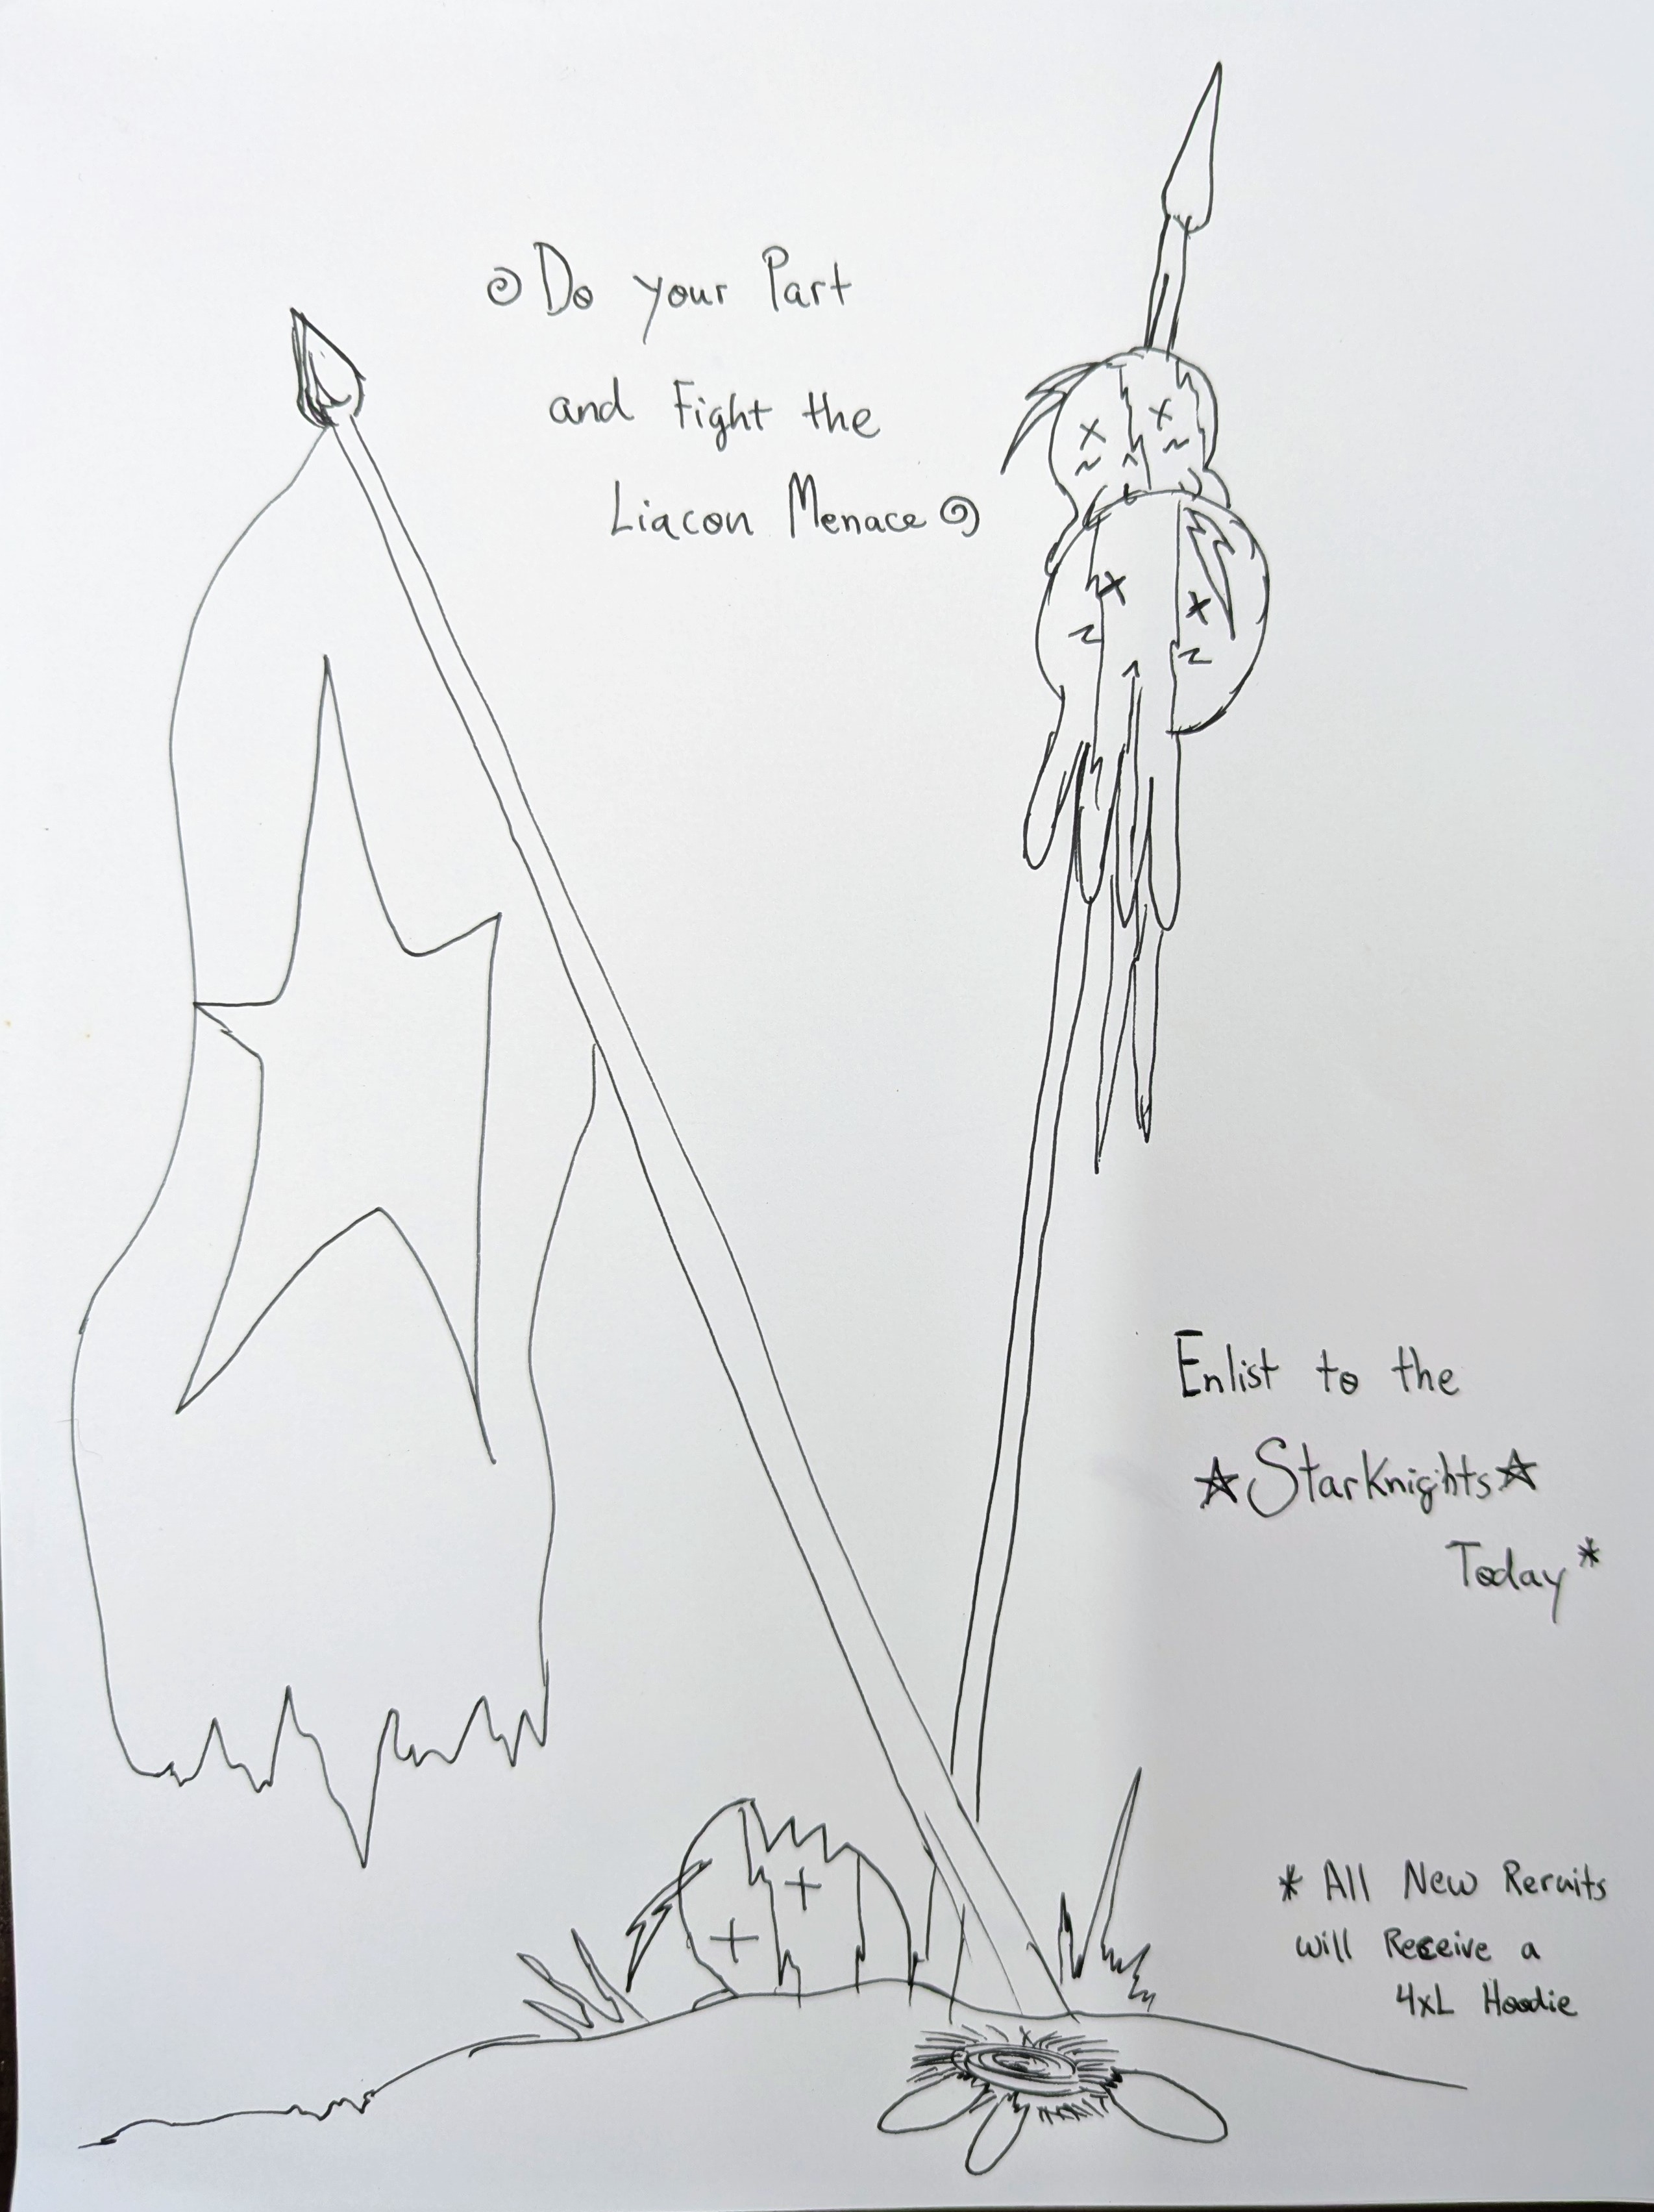 Do your Part
and Fight the
Liacon Menace
Enlist to the
☆StarKnights☆
Today*
* All New Reruits
will Receive a
4xL Hoodie